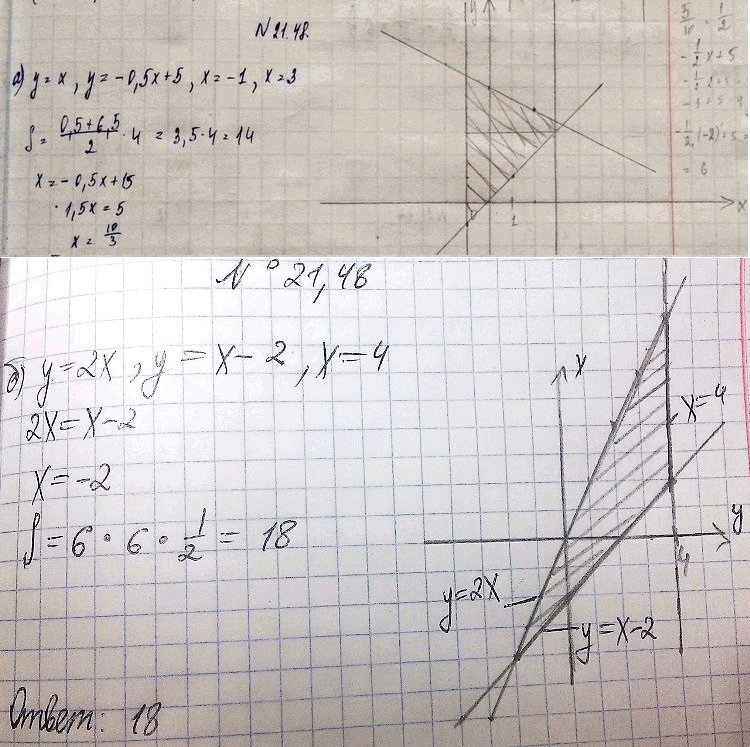 N 21.48.
а) y = x , y = -0,5x+5 , x = -1 , x = 3
S = (0,5+6,5)/2 · 4 = 3,5·4 = 14
x = -0,5x+5
1,5x = 5
x = 10/3
y
x
1
5/10 = 1/2
-1/2x+5
= 6
N° 21,48
б) y=2x , y = x-2 , x=4
2x = x-2
x = -2
S = 6 · 6 · 1/2 = 18
x
x=4
y
4
y=2x
y=x-2
Ответ: 18